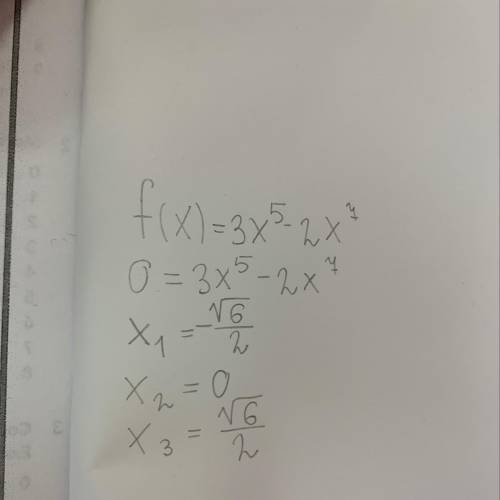 f(x)=3x⁵-2x⁷
0=3x⁵-2x⁷
x₁=-√6/2
x₂=0
x₃=√6/2